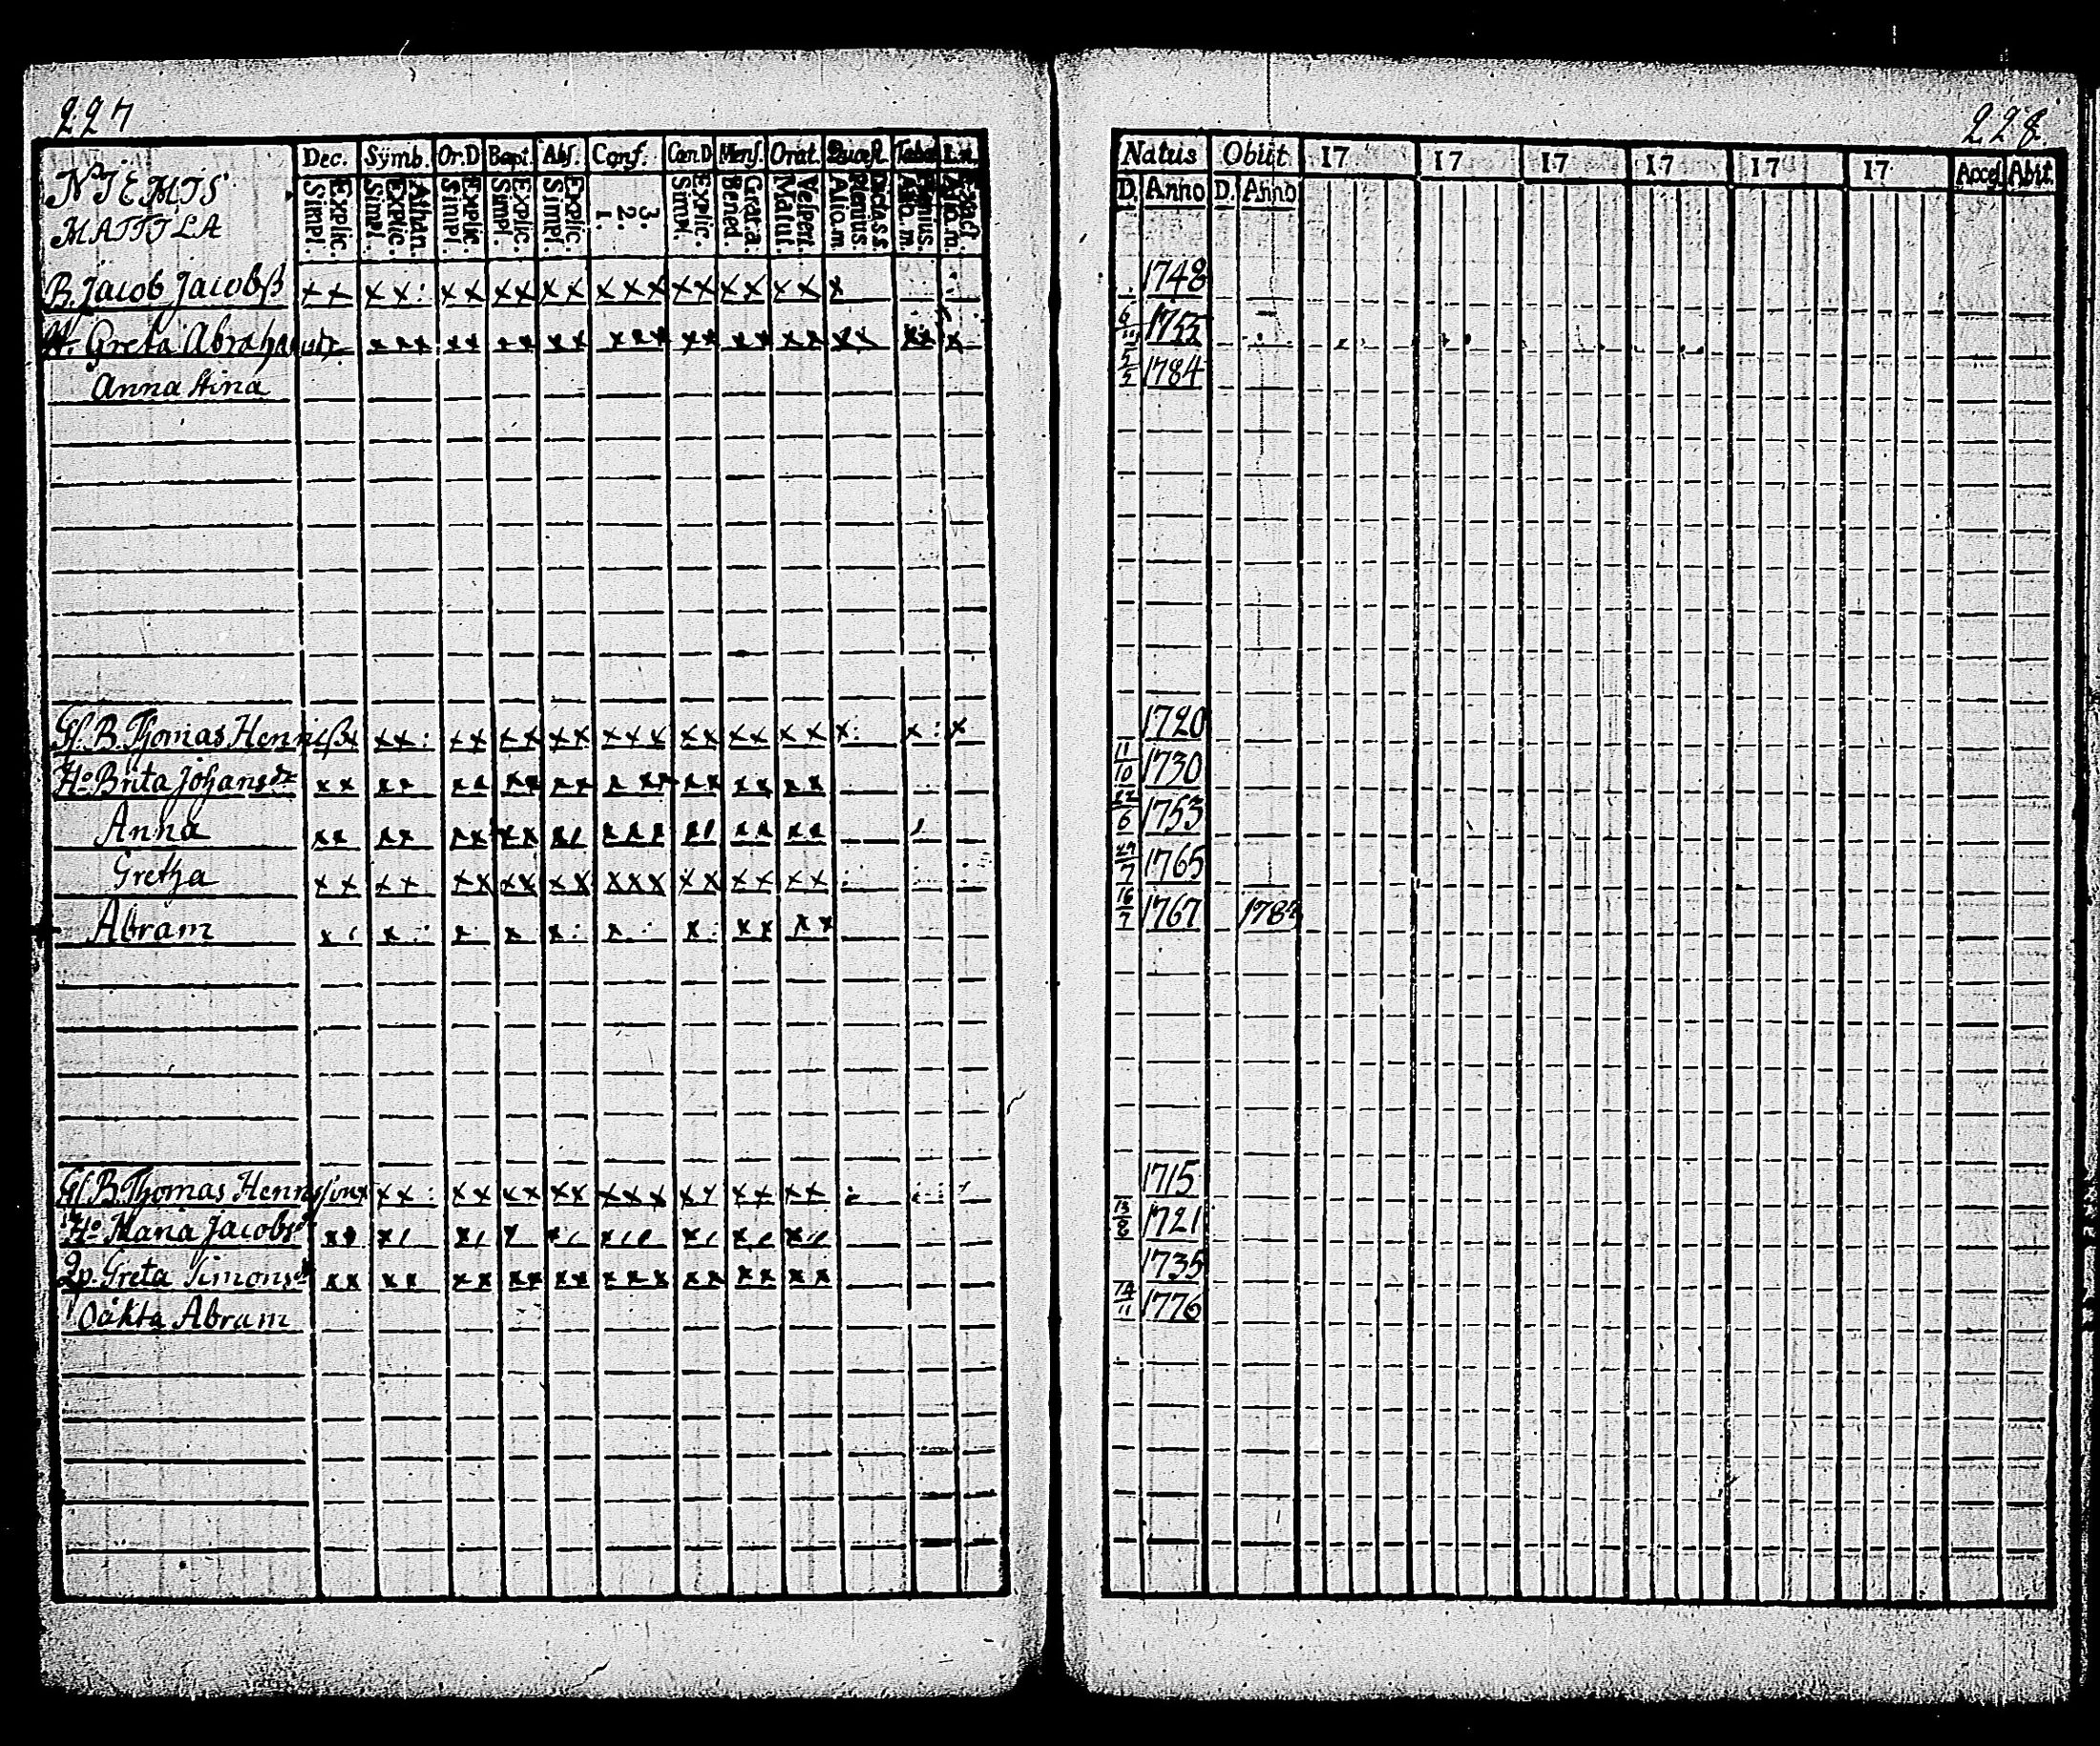 227
NIEMIS
MATTILA
Dec. Symb. Or.D Bapt. Abs. Conf. Cœn.D Mens. Orat. Quæst. Tabæ Ex.
Simpl. Explic. Simpl. Explic. Athan. Simpl. Explic. Simpl. Explic. Simpl. Explic. 1. 2. 3. Simpl. Explic. Bened. Grat.a. Matut. Vesper. Alio.m Plenius Dicta.s.s. Alio.m. Plenius. Alio.m. Exact.
B. Jacob Jacobsß x x x x : x x x x x x x x x x x x x x x x
H. Greta Abrahamsdr x x x x x x x x x x x x x x x x x x x x x x x
Anna Stina
Gl. B. Thomas Hennicßx x x : x x x x x x x x x x x x x x x x : x : x
Ho Brita Johansdr x x x x x x x x x x x x x x x x x x x
Anna x x x x x x x x x x x x x x x x x x
Gretha x x x x x x x x x x x x x x x x x x x
Abram x x x x x x x x x x x
Gl. B. Thomas Hennssonx x x : x x x x x x x x x x x x x x x x
Ho Maria Jacobsdr
Qp. Greta Simonsdr x x x x x x x x x x x x x x x x x x x
Oäkta Abram
228
Natus Obiit 17 17 17 17 17 17 Acces. Abit.
D. Anno D. Anno
1748
1755
1784
1720
11/10 1730
22/6 1753
29/7 1765
16/7 1767
1715
13/8 1721
1735
1776